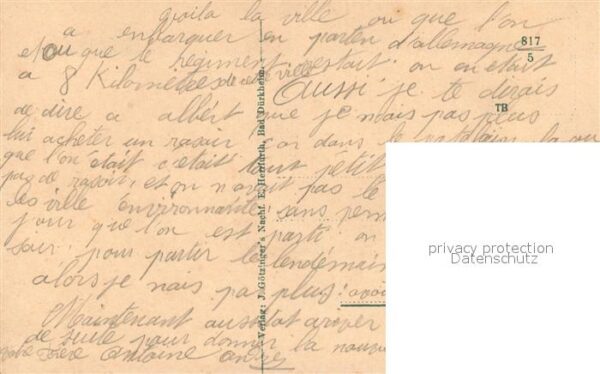 voila la ville ou que l'on
a embarquer en parten d'allemagne
et ou que le regiment restait on en etait
a 8 Kilometre de cette ville
Aussi je te dirais
de dire a albért que je n'ais pas peus
lui acheter un rasoir car dans le
que l'on etait c'etait tout petit
pas de rasoir, et on n'avait pas le
les ville environnante sans perm
jour que l'on est parti on
soir pour partir le lendémain
alors je n'ais pas plus
Maintenant aussitot ariver
de suite pour donner la nouve
votre frere Antoine
817
5
TB
Verlag: J. Götzinger's Nachf. E. Herrfurth, Bad Dürkheim.
privacy protection
Datenschutz